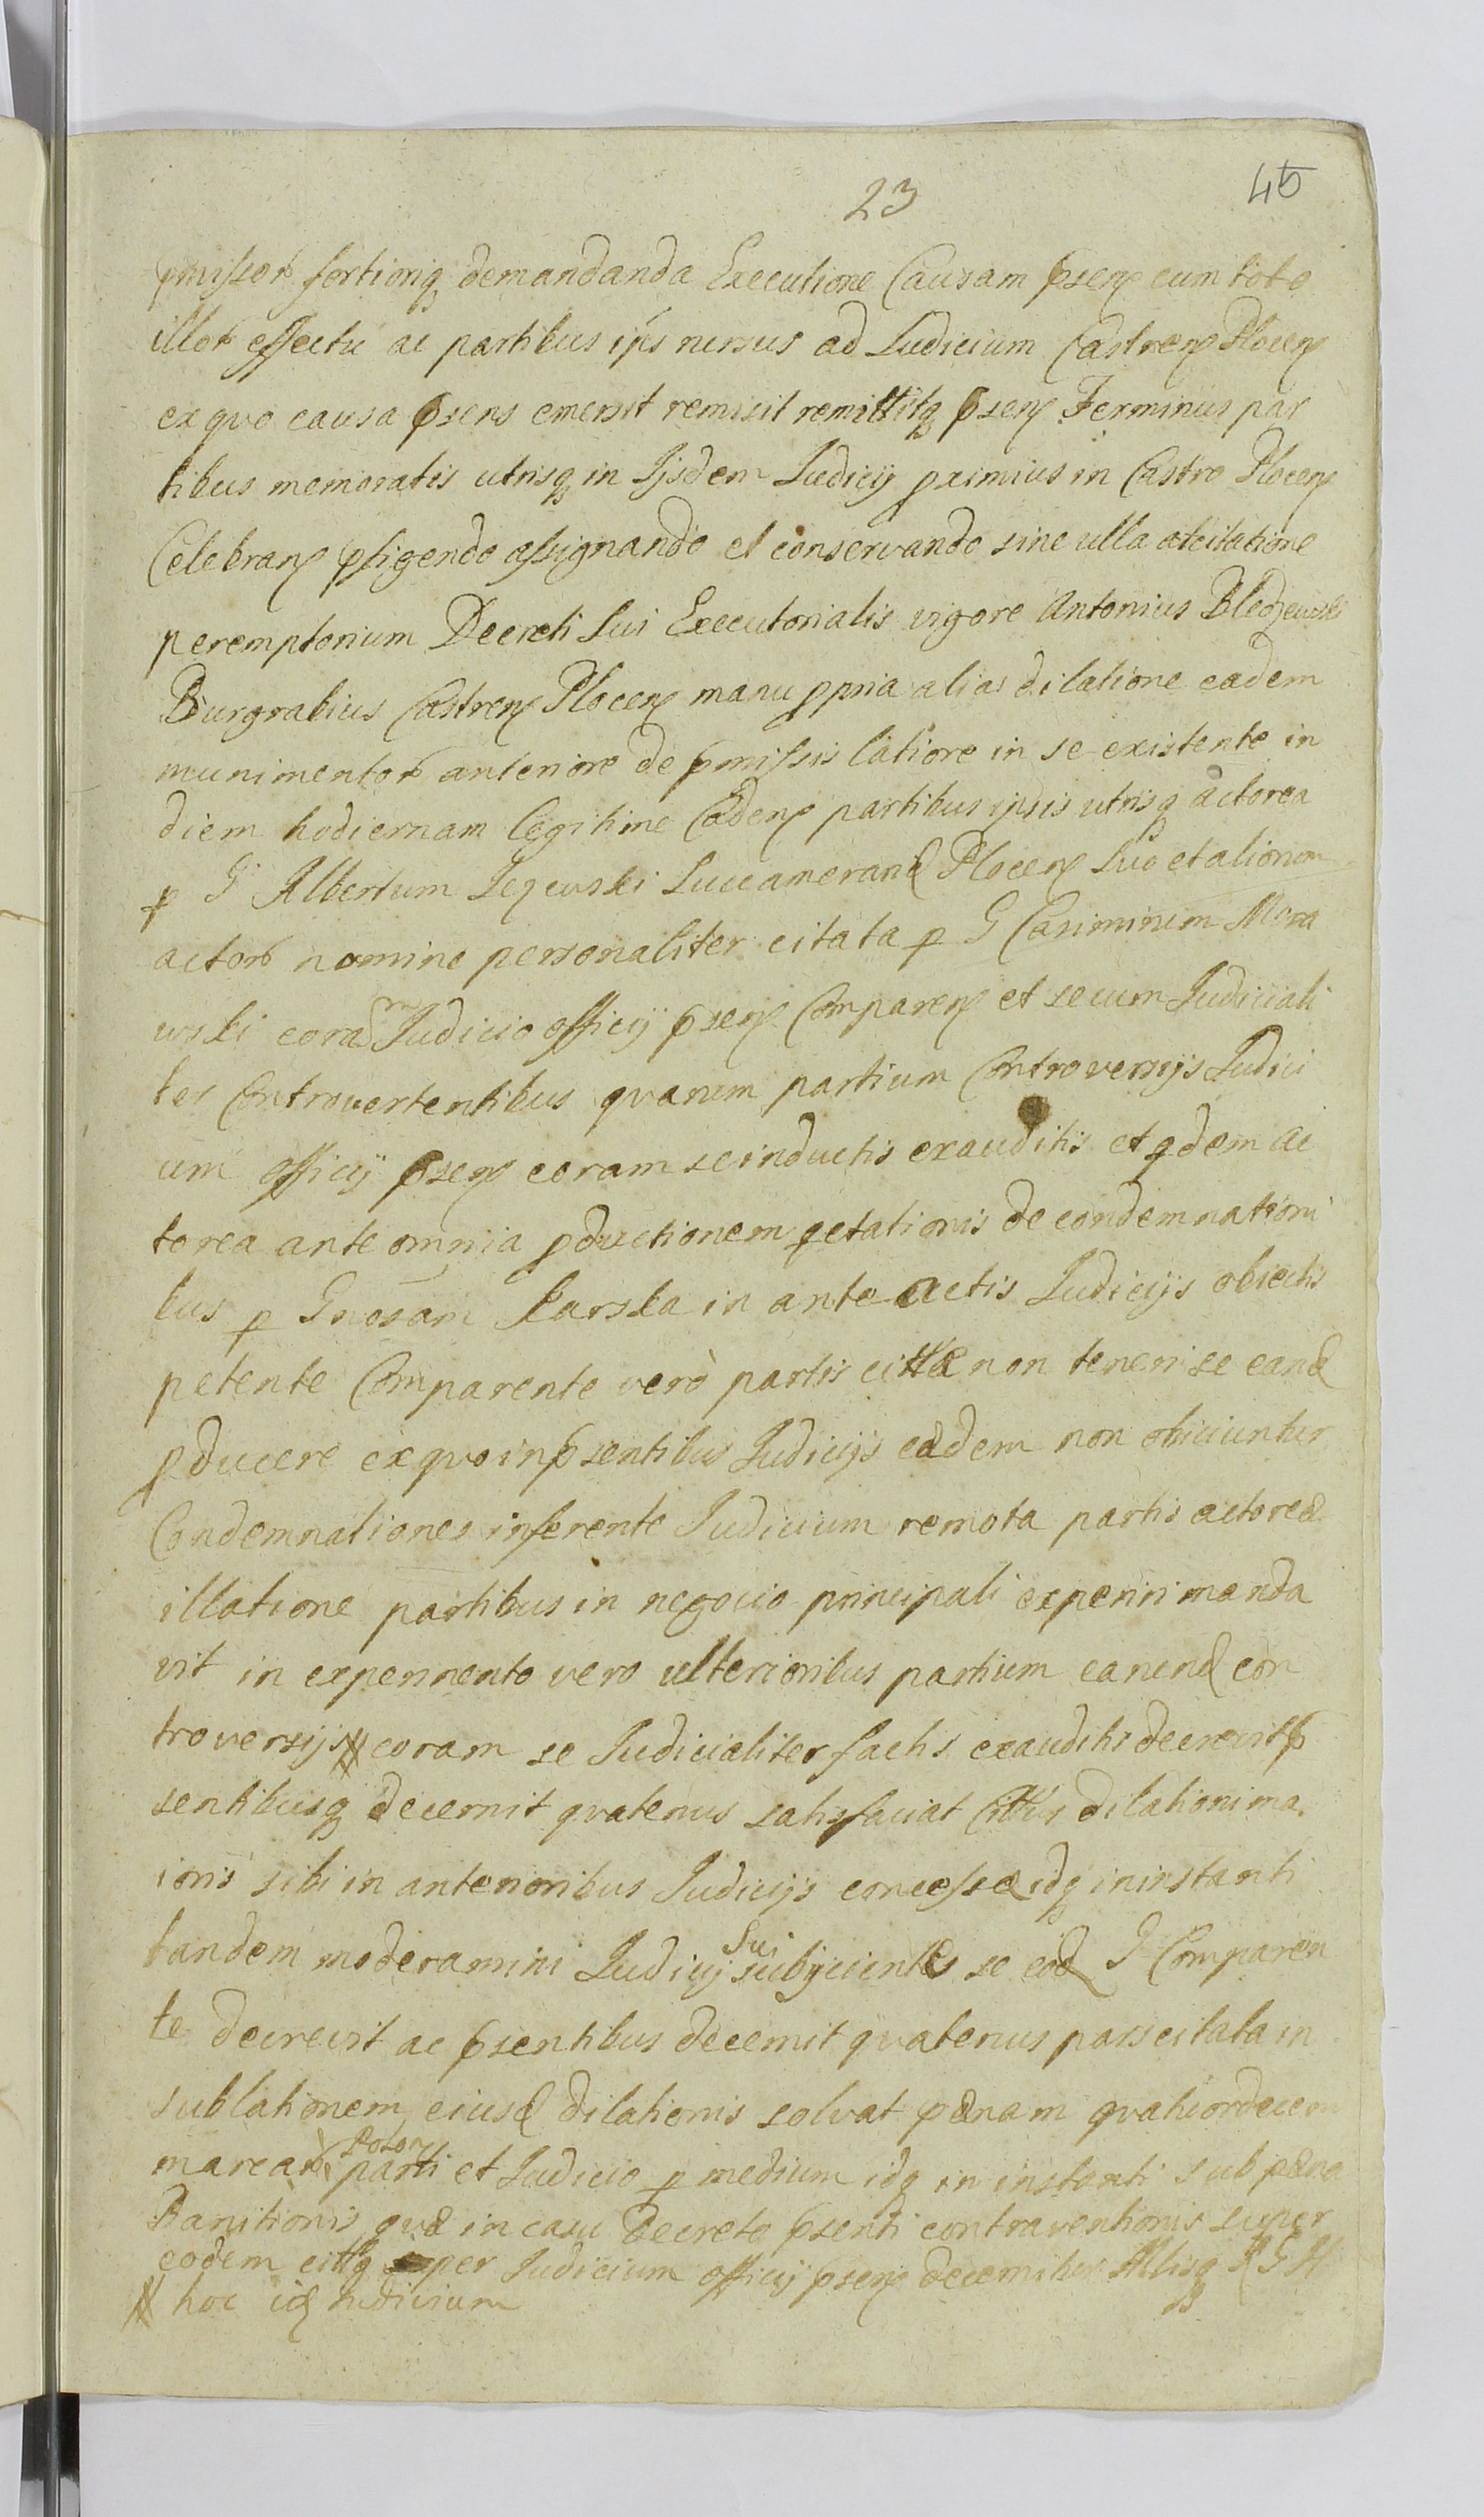 23
45
pmissor fortioriq demandanda Executione Causam psen cum toto
illor effectu ac partibus ijs rursus ad Judicium Castren Plocen
ex quo causa psens emersit remisit remittitq psen Terminus par
tibus memoratis utrisq in Ijsdem Judicij pximius in Castro Plocen
Celebran pfigendo assignando et conservando sine ulla atcitatione
peremptorium Decreti Sui Executorialis vigore Antonius Bledzewski
Burgrabius Castren Plocen manu ppria alias dilatione eadem
munimentor anteriore de pmissis latiore in se existente in
diem hodiernam legitime Caden partibus ipsis utrisq actorea
p G Albertum Lezewski Succamerand Plocen Suo et aliorum
actor nomine personaliter citata p G Casimirum Mora
wski coram Judicio officij psen Comparen et secum Judiciali
ter Controvertentibus quarum partium Controversijs Judici
um officij psen coram se inductis exauditis et qdem ac
torea ante omnia pductionem qetationis de condemnationi
bus p Gnosam Karska in ante actis Judicijs obiectis
petente Comparente verò partis cittæ non teneri se eand
pducere ex quo in psentibus Judicijs eædem non obiiciuntur
Condemnationes inferente Judicium remota partis actoreæ
illatione partibus in negocio principali experiri manda
vit in experimento vero ulterioribus partium earund con
troversijs # coram se Judicialiter factis exauditis decrevit p
sentibusq decernit quatenus satisfaciat Cittus dilationi ma
ioris sibi in anterioribus Judicijs concessæ idq in instanti
tandem moderamini Judicij Sui subijcientes se eod G Comparen
te decrevit ac psentibus decernit quatenus pars citata in
sublationem eiusd dilationis solvat pænam quatuordecem
marcar polon parti et Judicio p medium idq in instanti sub pæna
Banitionis quæ in casu Decreto psenti contraventionis super
eodem cittq per Judicium officij psen decernitur Illisq
# hoc id Judicium